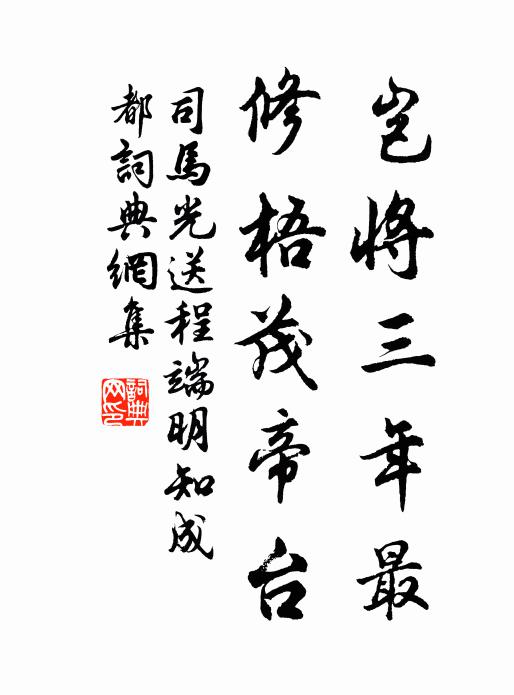 豈將三年最
修梧茂帝台
司馬光送程端明知成
都詞典網集
詞典
网印